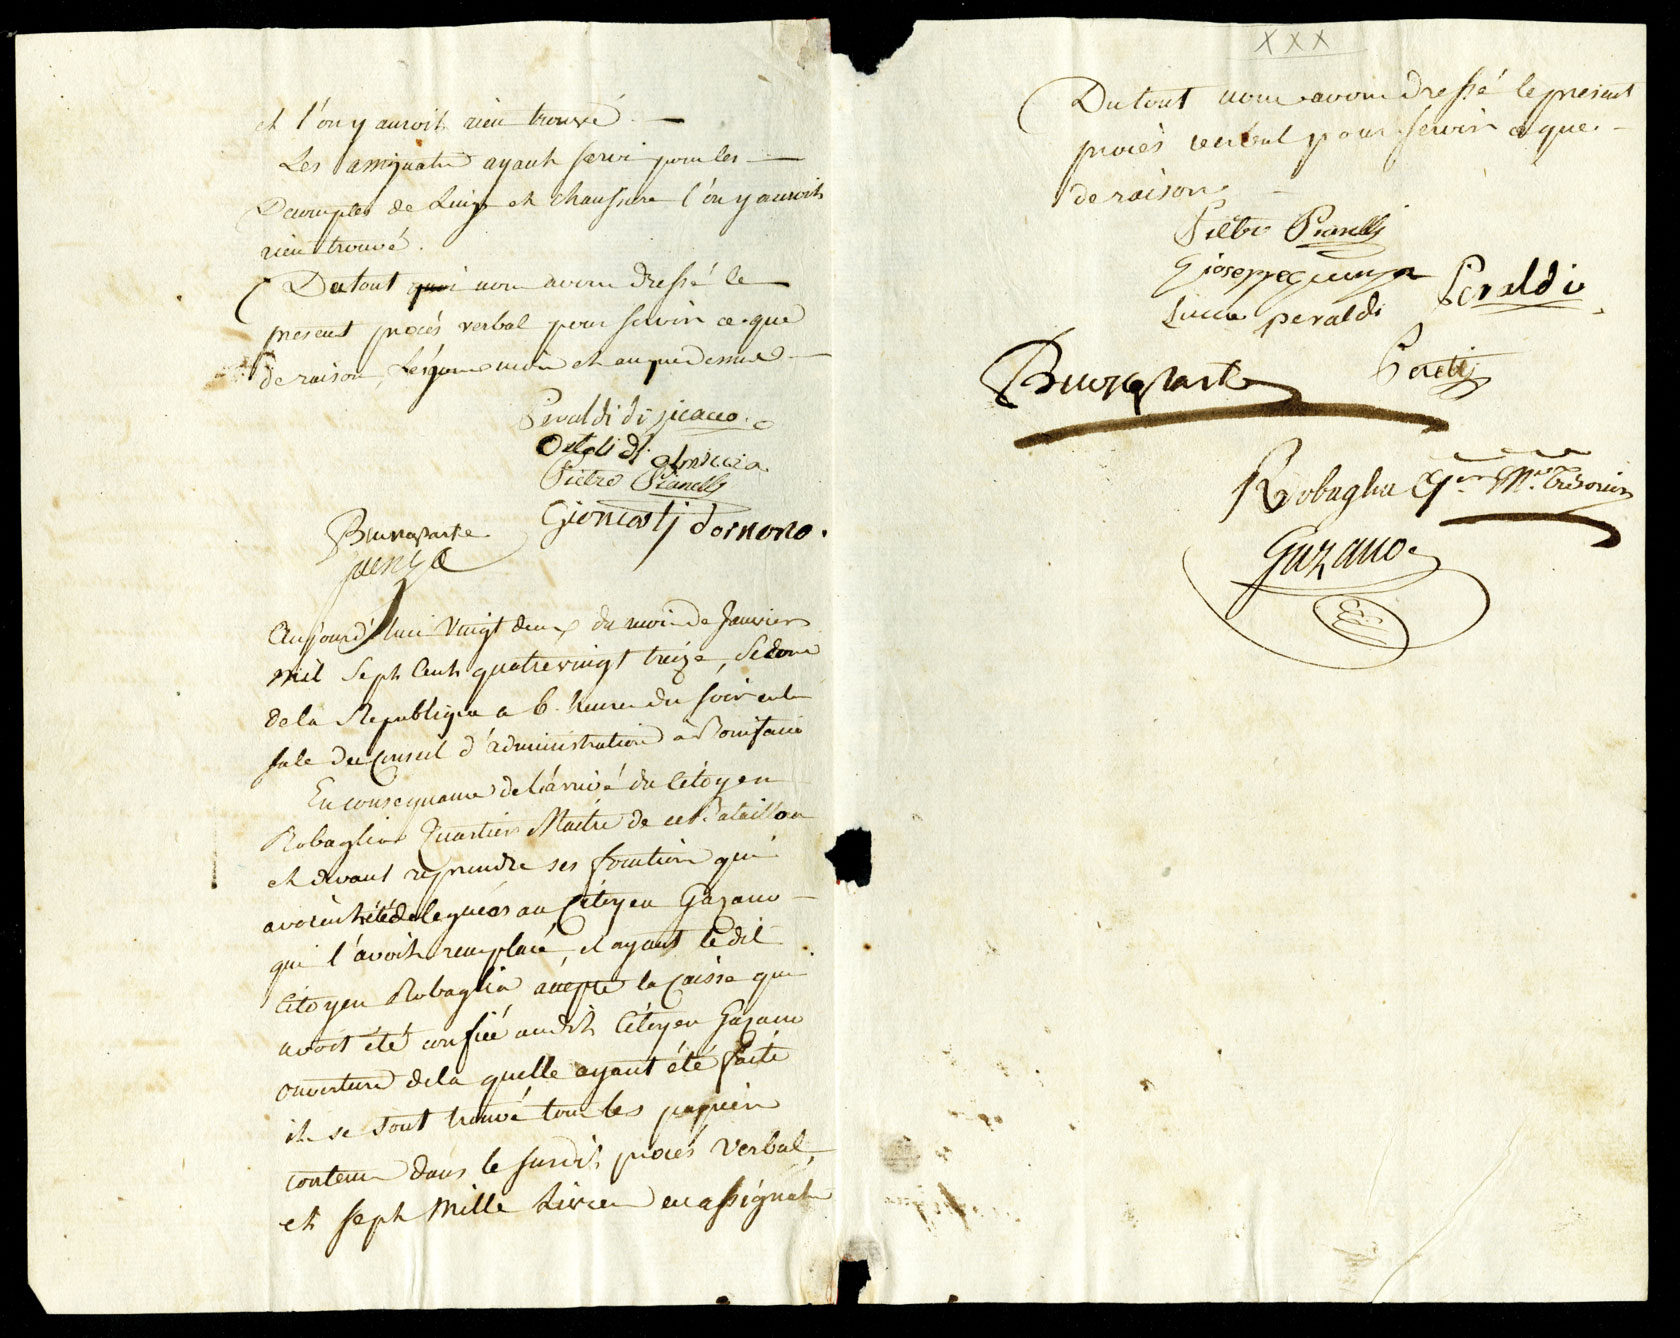 et l'on y auroit rien trouvé. —
Les assignats ayant servi pour les —
Decomptes de Linge et chaussure l'on y auroit
rien trouvé.
Du tout quoi nous avons dressé le
present procés verbal pour servir ce que
de raison, Les jour mois et an que dessus —
Peraldi di
Ortoli di
Pietro Pianelli
Gioncarli d'ornano.
Buonaparte
Quenza
Aujourd'hui Vingt deux du mois de Janvier
mil Sept Cent quatrevingt treize, Seconde
de la Republique a 6. heures du soir en la
sale du Conseil d'administration à Bonifacio
En consequance de l'arrivé du Citoyen
Robaglia Quartier Maitre de ce Bataillon
et devant reprendre ses fonction qui
avoient été deleguées au Citoyen Gazano —
qui l'avoit remplacé, et ayant le dit
Citoyen Robaglia accepté la Caisse qui
avoit été confiée audit Citoyen Gazano
ouverture de la quelle ayant été faite
il se sont trouvé tous les papiers
contenu dans le susdit procés Verbal,
et sept Mille Livres en assignats
XXX
Du tout nous avons dressé le present
procès verbal pour servir a que —
de raison. —
Pietro Pianelli
Giuseppe Quenza
Peraldi
Peraldi
Buonaparte
Peretti
Robaglia Qer. Mre. Trésorier
Gazano